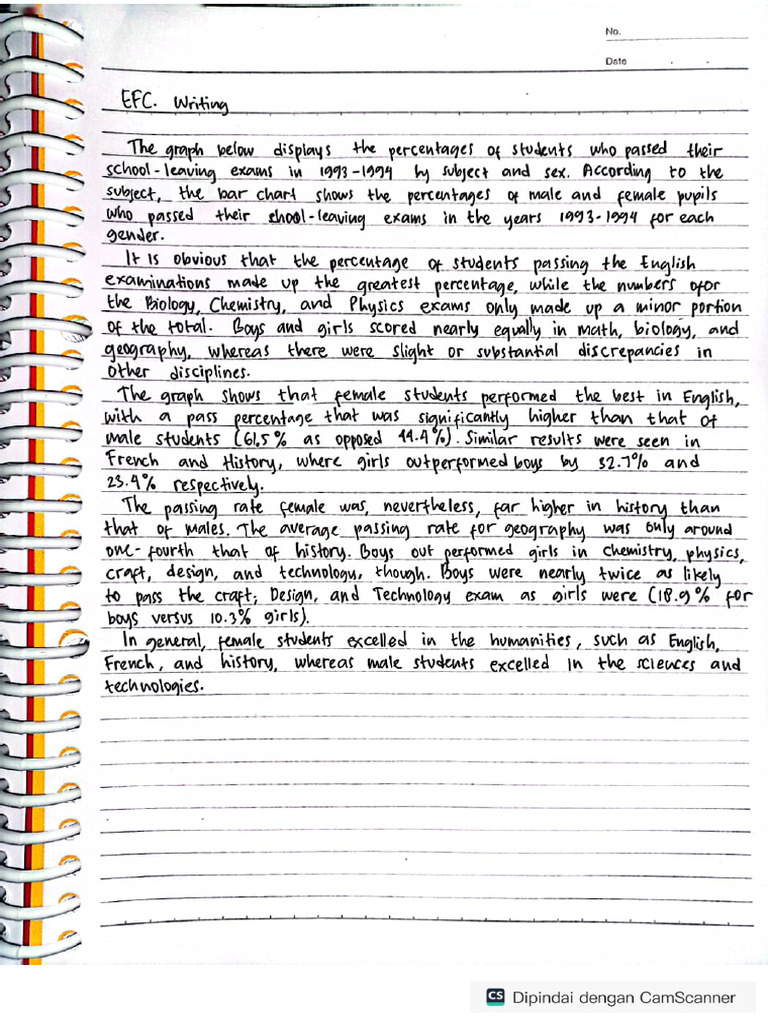 No.
Date
EFC. Writing
The graph below displays the percentages of students who passed their
school-leaving exams in 1993-1994 by subject and sex. According to the
subject, the bar chart shows the percentages of male and female pupils
who passed their shool-leaving exams in the years 1993-1994 for each
gender.
It is obvious that the percentage of students passing the English
examinations made up the greatest percentage, while the numbers ofor
the Biology, Chemistry, and Physics exams only made up a minor portion
of the total. Boys and girls scored nearly equally in math, biology, and
geography, whereas there were slight or substantial discrepancies in
other disciplines.
The graph shows that female students performed the best in English,
with a pass percentage that was significantly higher than that of
male students (61,5% as opposed 44.4%). Similar results were seen in
French and History, where girls outperformed boys by 32.7% and
23.4% respectively.
The passing rate female was, nevertheless, far higher in history than
that of males. The average passing rate for geography was only around
one-fourth that of history. Boys out performed girls in chemistry, physics,
craft, design, and technology, though. Boys were nearly twice as likely
to pass the craft; Design, and Technology exam as girls were (18.9% for
boys versus 10.3% girls).
In general, female students excelled in the humanities, such as English,
French, and history, whereas male students excelled in the sciences and
technologies.
CS Dipindai dengan CamScanner